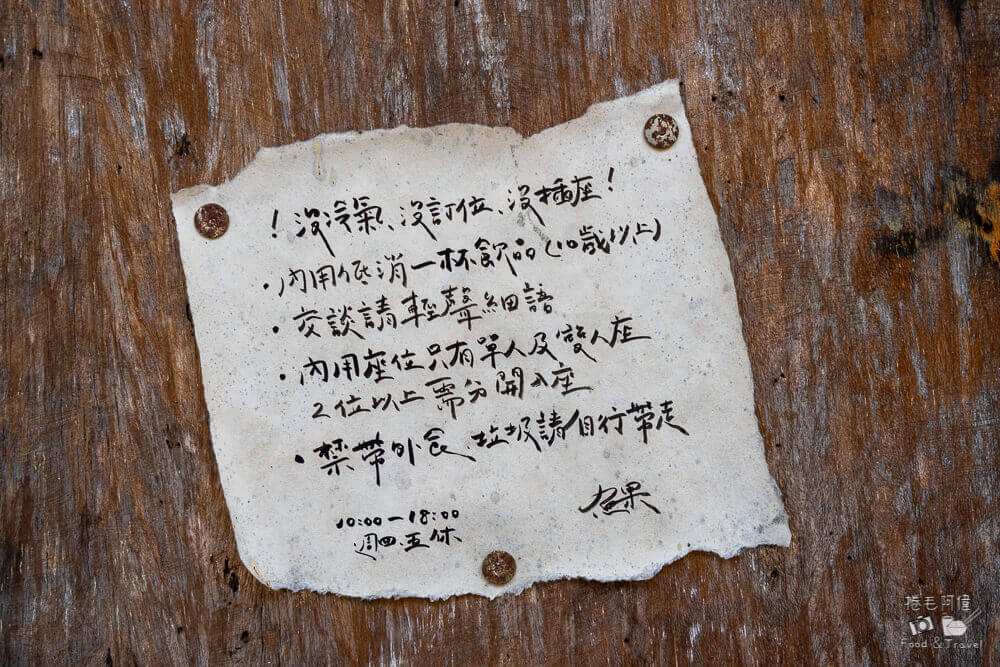 ！沒冷氣、沒訂位、沒插座！
・內用低消一杯飲品(10歲以上)
・交談請輕聲細語
・內用座位只有單人及雙人座
2位以上需分開入座
・禁帶外食、垃圾請自行帶走
魚果
10:00－18:00
週四、五休
捲毛阿偉
Food & Travel